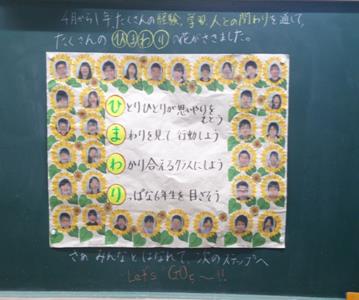 4月から1年、たくさんの経験、学習、人との関わりを通して、
たくさんの ひまわり の花がさきました。
ひとりひとりが思いやりをもとう
まわりを見て 行動しよう
わかり合えるクラスにしよう
りっぱな6年生を目ざそう
さぁ みんなとはなれて、次のステップへ
Let's GOo〜!!